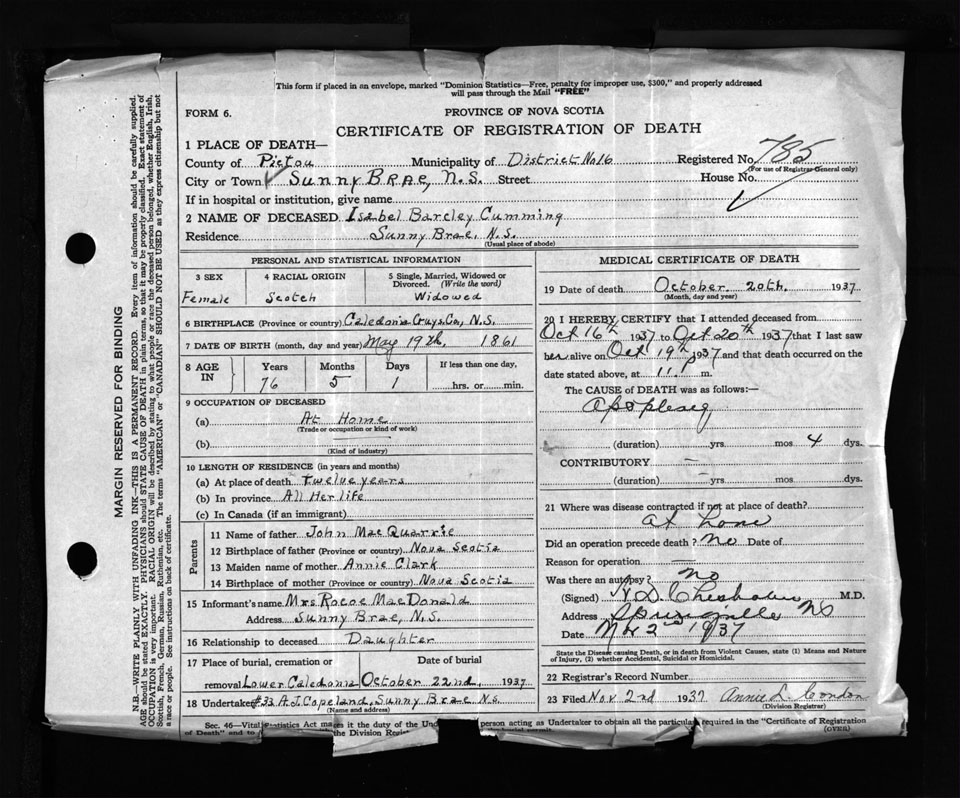 This form if placed in an envelope, marked "Dominion Statistics—Free, penalty for improper use, $300," and properly addressed
will pass through the Mail "FREE"
FORM 6.
PROVINCE OF NOVA SCOTIA
CERTIFICATE OF REGISTRATION OF DEATH
1 PLACE OF DEATH—
County of Pictou Municipality of District No 16 Registered No. 785
(For use of Registrar-General only)
City or Town Sunny Brae, N.S. Street House No.
If in hospital or institution, give name
2 NAME OF DECEASED Isabel Barcley Cumming
Residence Sunny Brae, N.S.
(Usual place of abode)
PERSONAL AND STATISTICAL INFORMATION
3 SEX 4 RACIAL ORIGIN 5 Single, Married, Widowed or
Divorced. (Write the word)
Female Scotch Widowed
6 BIRTHPLACE (Province or country) Caledonia Guys. Co, N.S.
7 DATE OF BIRTH (month, day and year) May 19th, 1861
8 AGE IN Years Months Days If less than one day,
76 5 1 hrs. or min.
9 OCCUPATION OF DECEASED
(a) At Home
(Trade or occupation or kind of work)
(b)
(Kind of industry)
10 LENGTH OF RESIDENCE (in years and months)
(a) At place of death Twelve years
(b) In province All Her life
(c) In Canada (if an immigrant)
Parents
11 Name of father John MacQuarrie
12 Birthplace of father (Province or country) Nova Scotia
13 Maiden name of mother Annie Clark
14 Birthplace of mother (Province or country) Nova Scotia
15 Informant's name Mrs Rocoe MacDonald
Address Sunny Brae, N.S.
16 Relationship to deceased Daughter
17 Place of burial, cremation or Date of burial
removal Lower Caledonia October 22nd, 1937
18 Undertaker #33 A.J. Copeland, Sunny Brae N.S.
(Name and address)
MEDICAL CERTIFICATE OF DEATH
19 Date of death October 20th, 1937
(Month, day and year)
20 I HEREBY CERTIFY that I attended deceased from
Oct 16th 1937 to Oct 20th 1937 that I last saw
her alive on Oct 19th 1937 and that death occurred on the
date stated above, at 11 P m.
The CAUSE of DEATH was as follows:—
Apoplexy
(duration) yrs. mos 4 dys.
CONTRIBUTORY —
(duration) — yrs. mos. dys.
21 Where was disease contracted if not at place of death?
at home
Did an operation precede death? No Date of
Reason for operation —
Was there an autopsy? no
(Signed) Chisholm M.D.
Address Springville NS
Date Nov 2nd 1937
State the Disease causing Death, or in death from Violent Causes, state (1) Means and Nature
of Injury, (2) whether Accidental, Suicidal or Homicidal.
22 Registrar's Record Number
23 Filed Nov 2nd 1937 Annie L Condon
(Division Registrar)
Sec. 46—Vital Statistics Act makes it the duty of the Und person acting as Undertaker to obtain all the particulars required in the "Certificate of Registration
of Death" and to the Division Regist (OVER)
MARGIN RESERVED FOR BINDING
N.B.—WRITE PLAINLY WITH UNFADING INK—THIS IS A PERMANENT RECORD. Every item of information should be carefully supplied.
AGE should be stated EXACTLY. PHYSICIANS should STATE CAUSE OF DEATH in plain terms, so that it may be properly classified. Exact statement of
OCCUPATION is very important. RACIAL ORIGIN will be described by stating to what people or race the deceased person belonged, whether English, Irish,
Scottish, French, German, Russian, Ruthenian, etc. The terms "AMERICAN" or "CANADIAN" SHOULD NOT BE USED as they express citizenship but not
a race or people. See instructions on back of certificate.